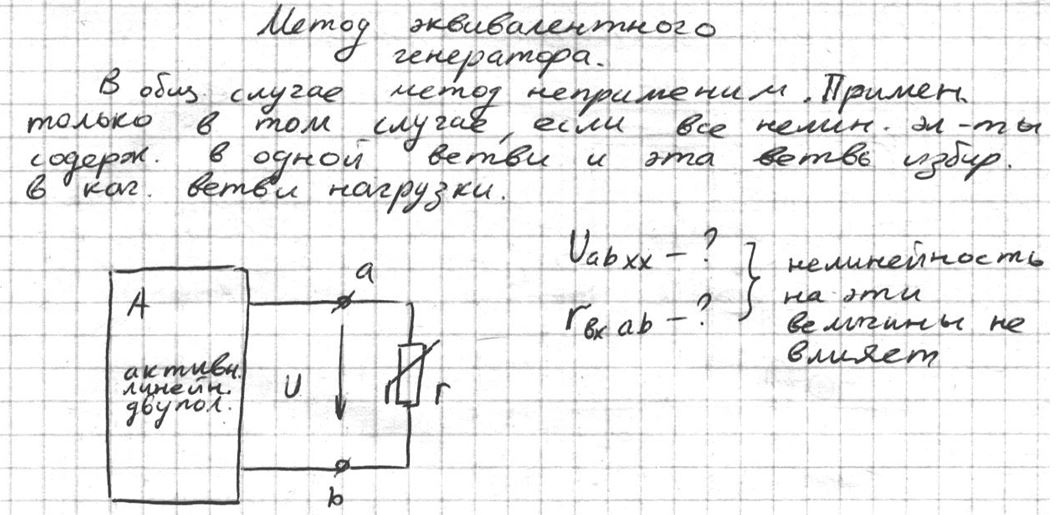 Метод эквивалентного
генератора.
В общ. случае метод неприменим. Примен.
только в том случае, если все нелин. эл-ты
содерж. в одной ветви и эта ветвь избир.
в кач. ветви нагрузки.
a
A
активн.
линейн.
двупол.
U
r
b
Uab xx - ?
rвх ab - ?
нелинейность
на эти
величины не
влияет